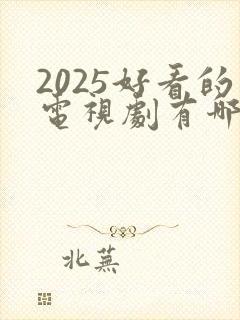 2025好看的
電視劇有哪
北蕪